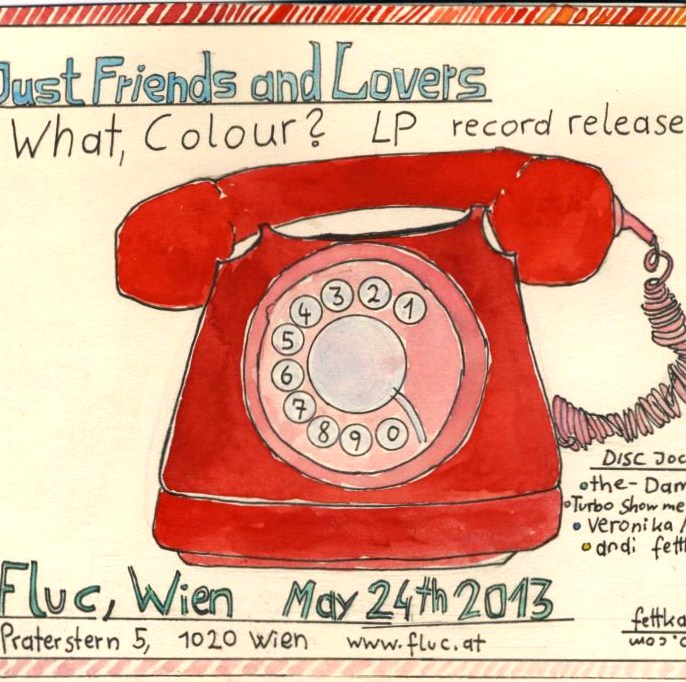 Just Friends and Lovers
What, Colour? LP record release
1
2
3
4
5
6
7
8
9
0
Disc Joc
the-Dam
Turbo Show me
Veronika
andi fett
Fluc, Wien May 24th 2013
Praterstern 5, 1020 Wien www.fluc.at
fettka